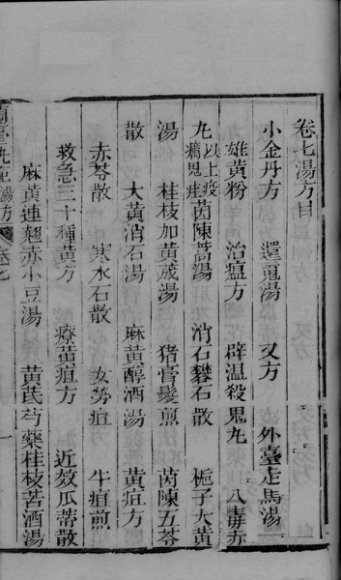 卷七湯方目
小金丹方 還魂湯 又方 外臺走馬湯
雄黃粉 治瘟方 辟温殺鬼丸 八毒赤
丸以上疫癘思疰 茵陳蒿湯 消石礬石散 梔子大黃
湯 桂枝加黃茂湯 猪膏髮煎 茵陳五苓
散 大黃消石湯 麻黃醇酒湯 黃疸方
赤苓散 寒水石散 女勞疸 牛疸煎
救急三十種黃方 療黃疸方 近效瓜蒂散
麻黃連翹赤小豆湯 黃芪芍藥桂枝苦酒湯
湯方 卷七
一